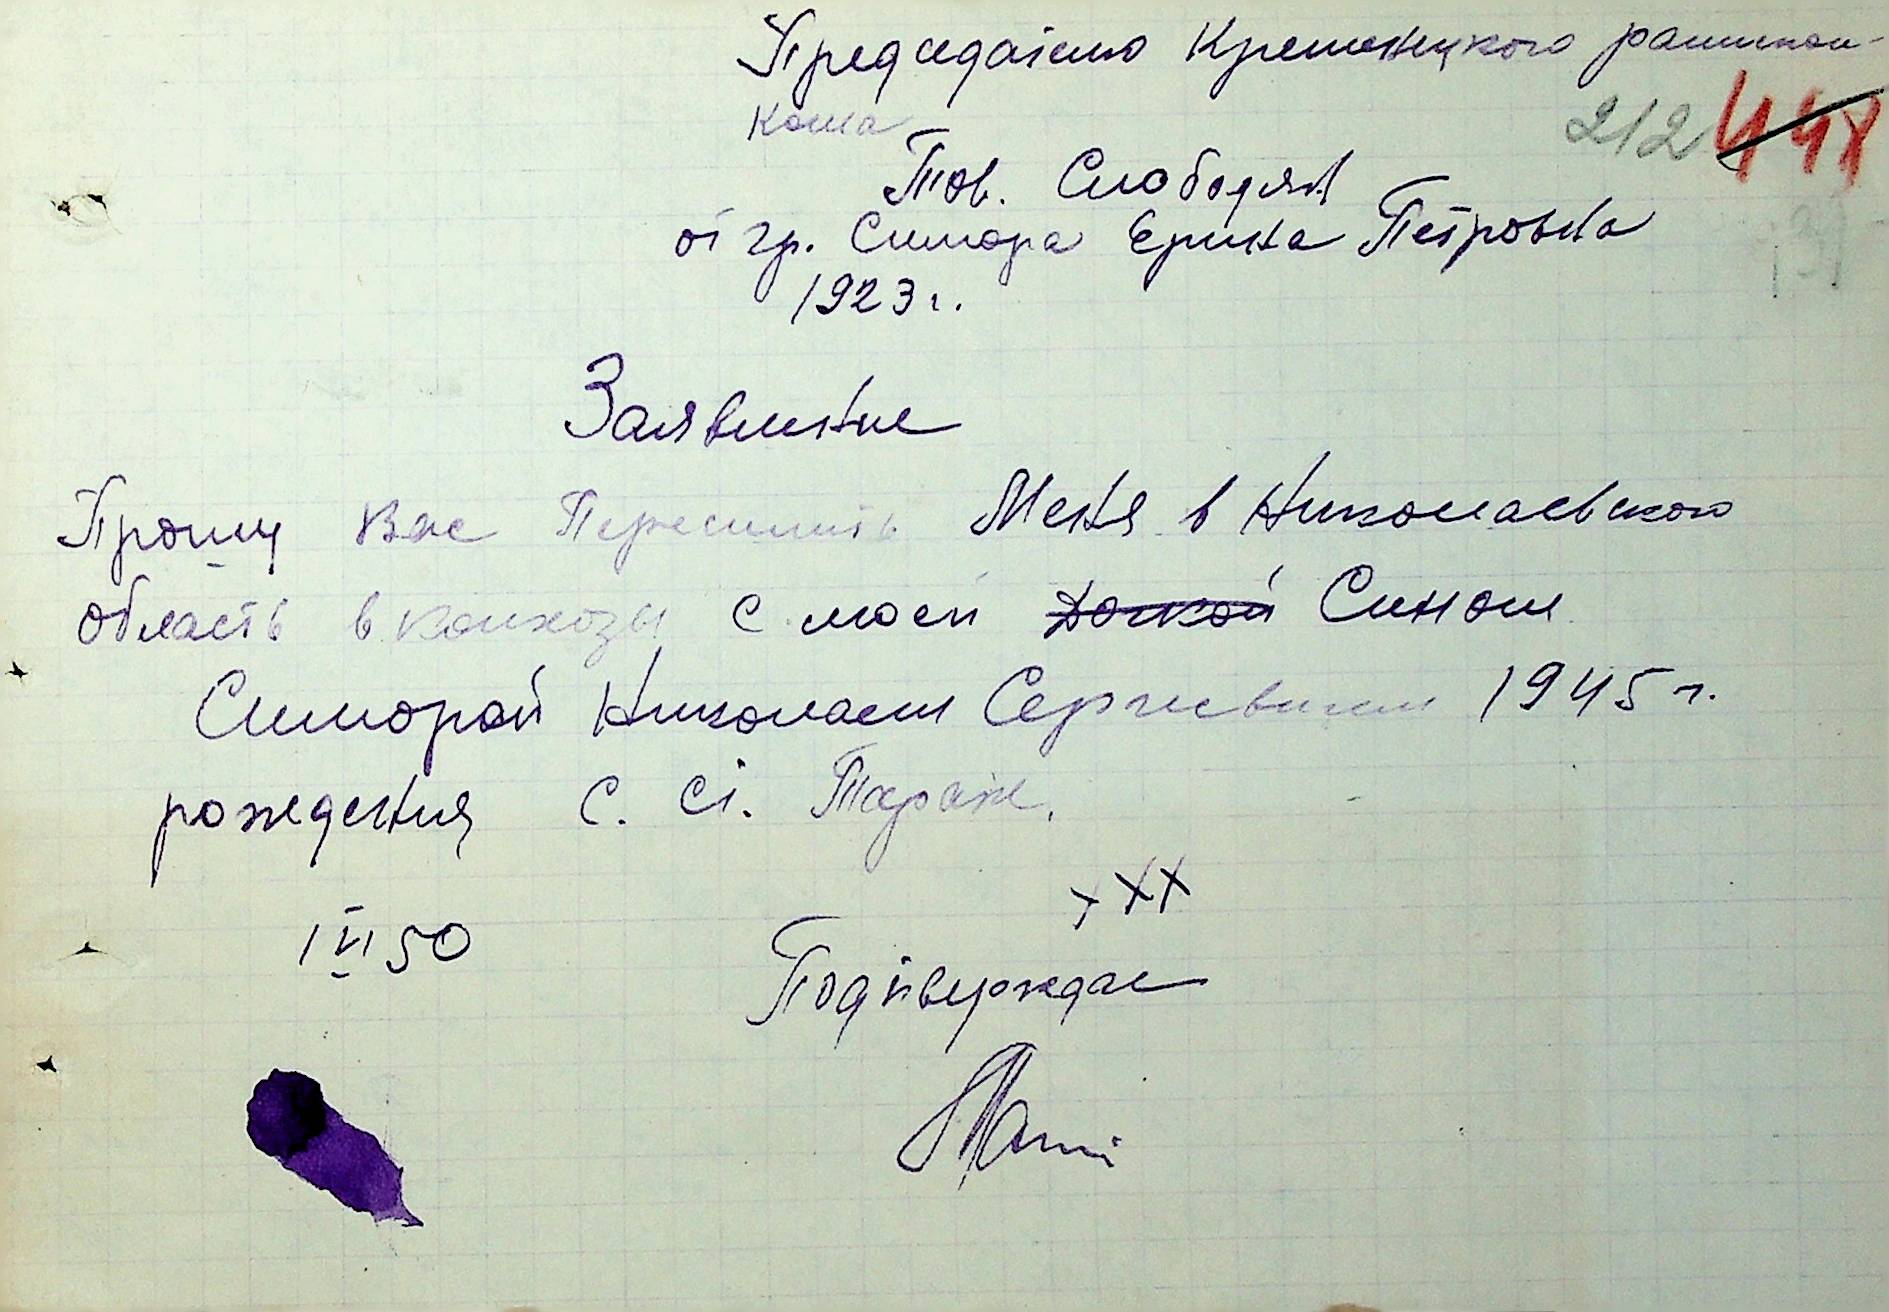 Председателю Кременецкого райиспол-
кома
212 448
Тов. Слободян
от гр. Симора Ерина Петровна
1923 г.
Заявление
Прошу Вас Переселить Меня в Николаевского
область в колхозы с моей дочкой Сином
Симорай Николаем Сергиевичем 1945 г.
рождения с. Ст. Тараж.
XXX
1 VI 50
Подтверждае